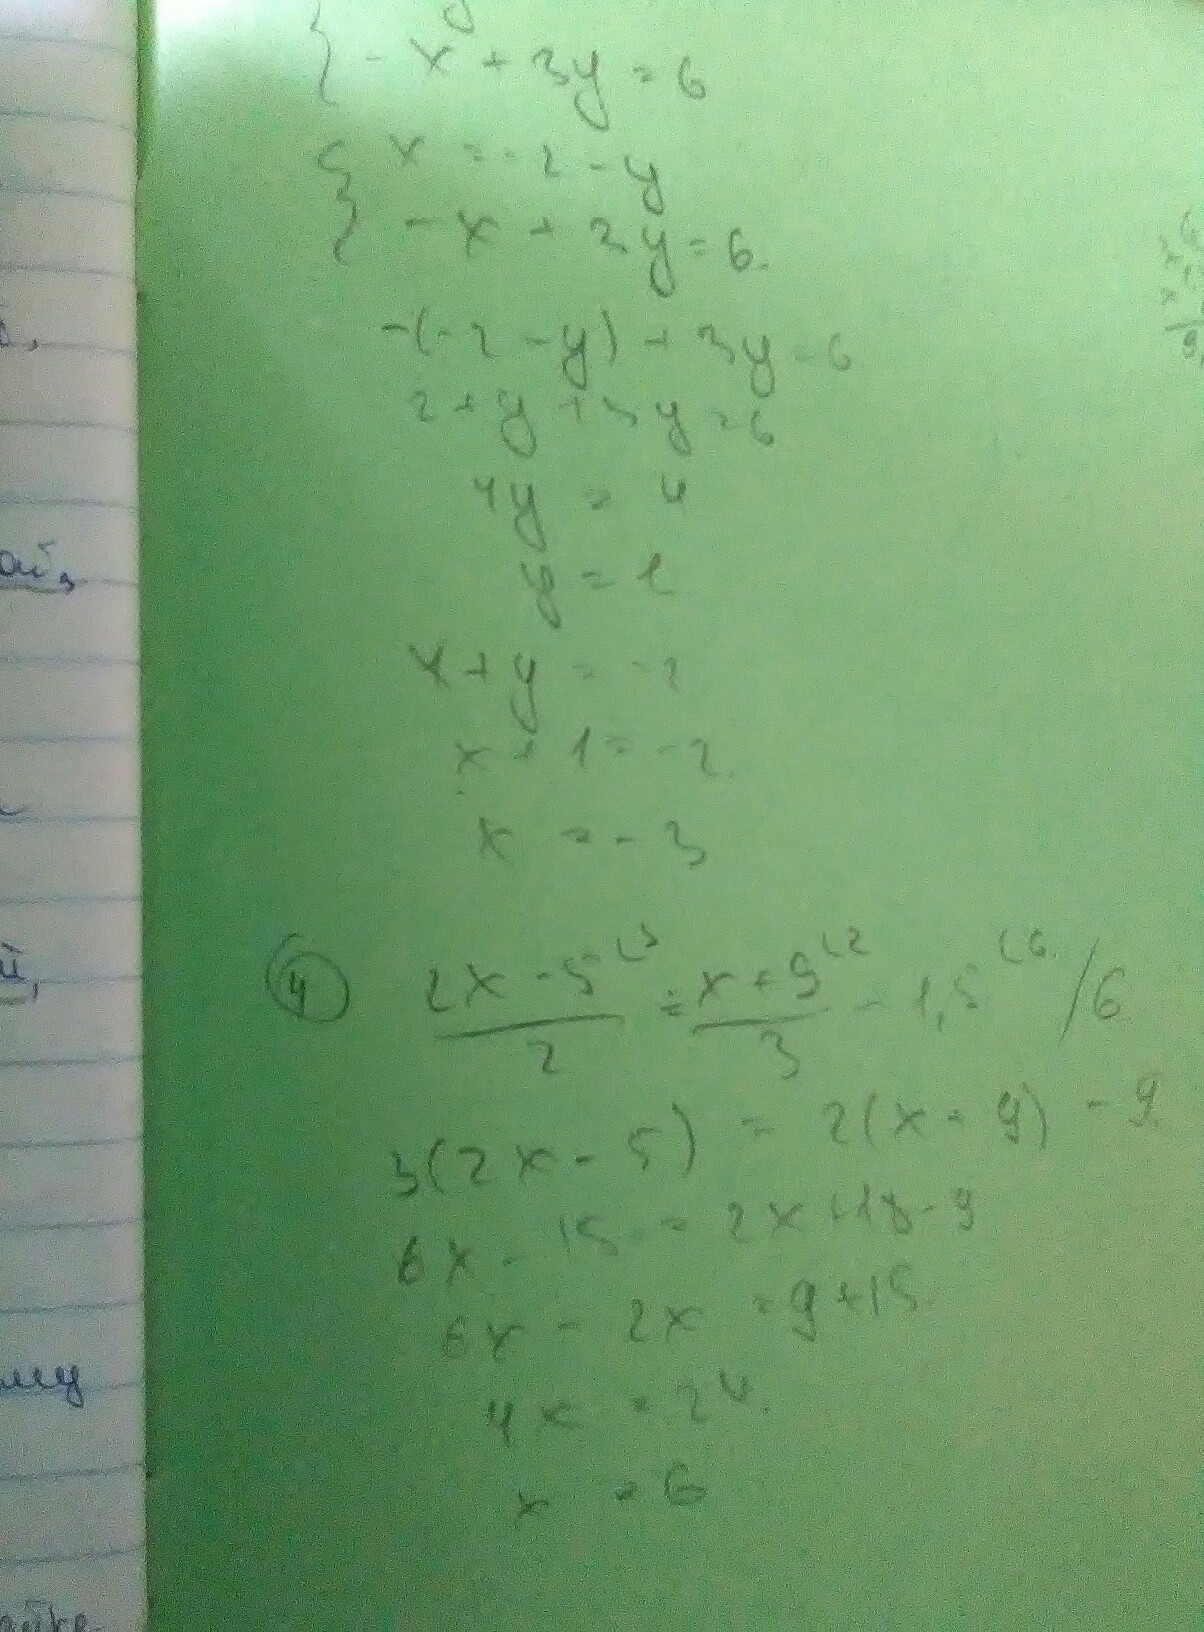 { - x + 3y = 6
{ x = -2 - y
- x + 3y = 6.
-(-2 - y) + 3y = 6
2 + y + 3y = 6
4y = 4
y = 1
x + y = -2
x + 1 = -2.
x = -3
(4) (2x - 5)/2 = (x + 9)/3 - 1,5 /6
3(2x - 5) = 2(x + 9) - 9.
6x - 15 = 2x + 18 - 9
6x - 2x = 9 + 15
4x = 24.
x = 6
ай,
й,
ому